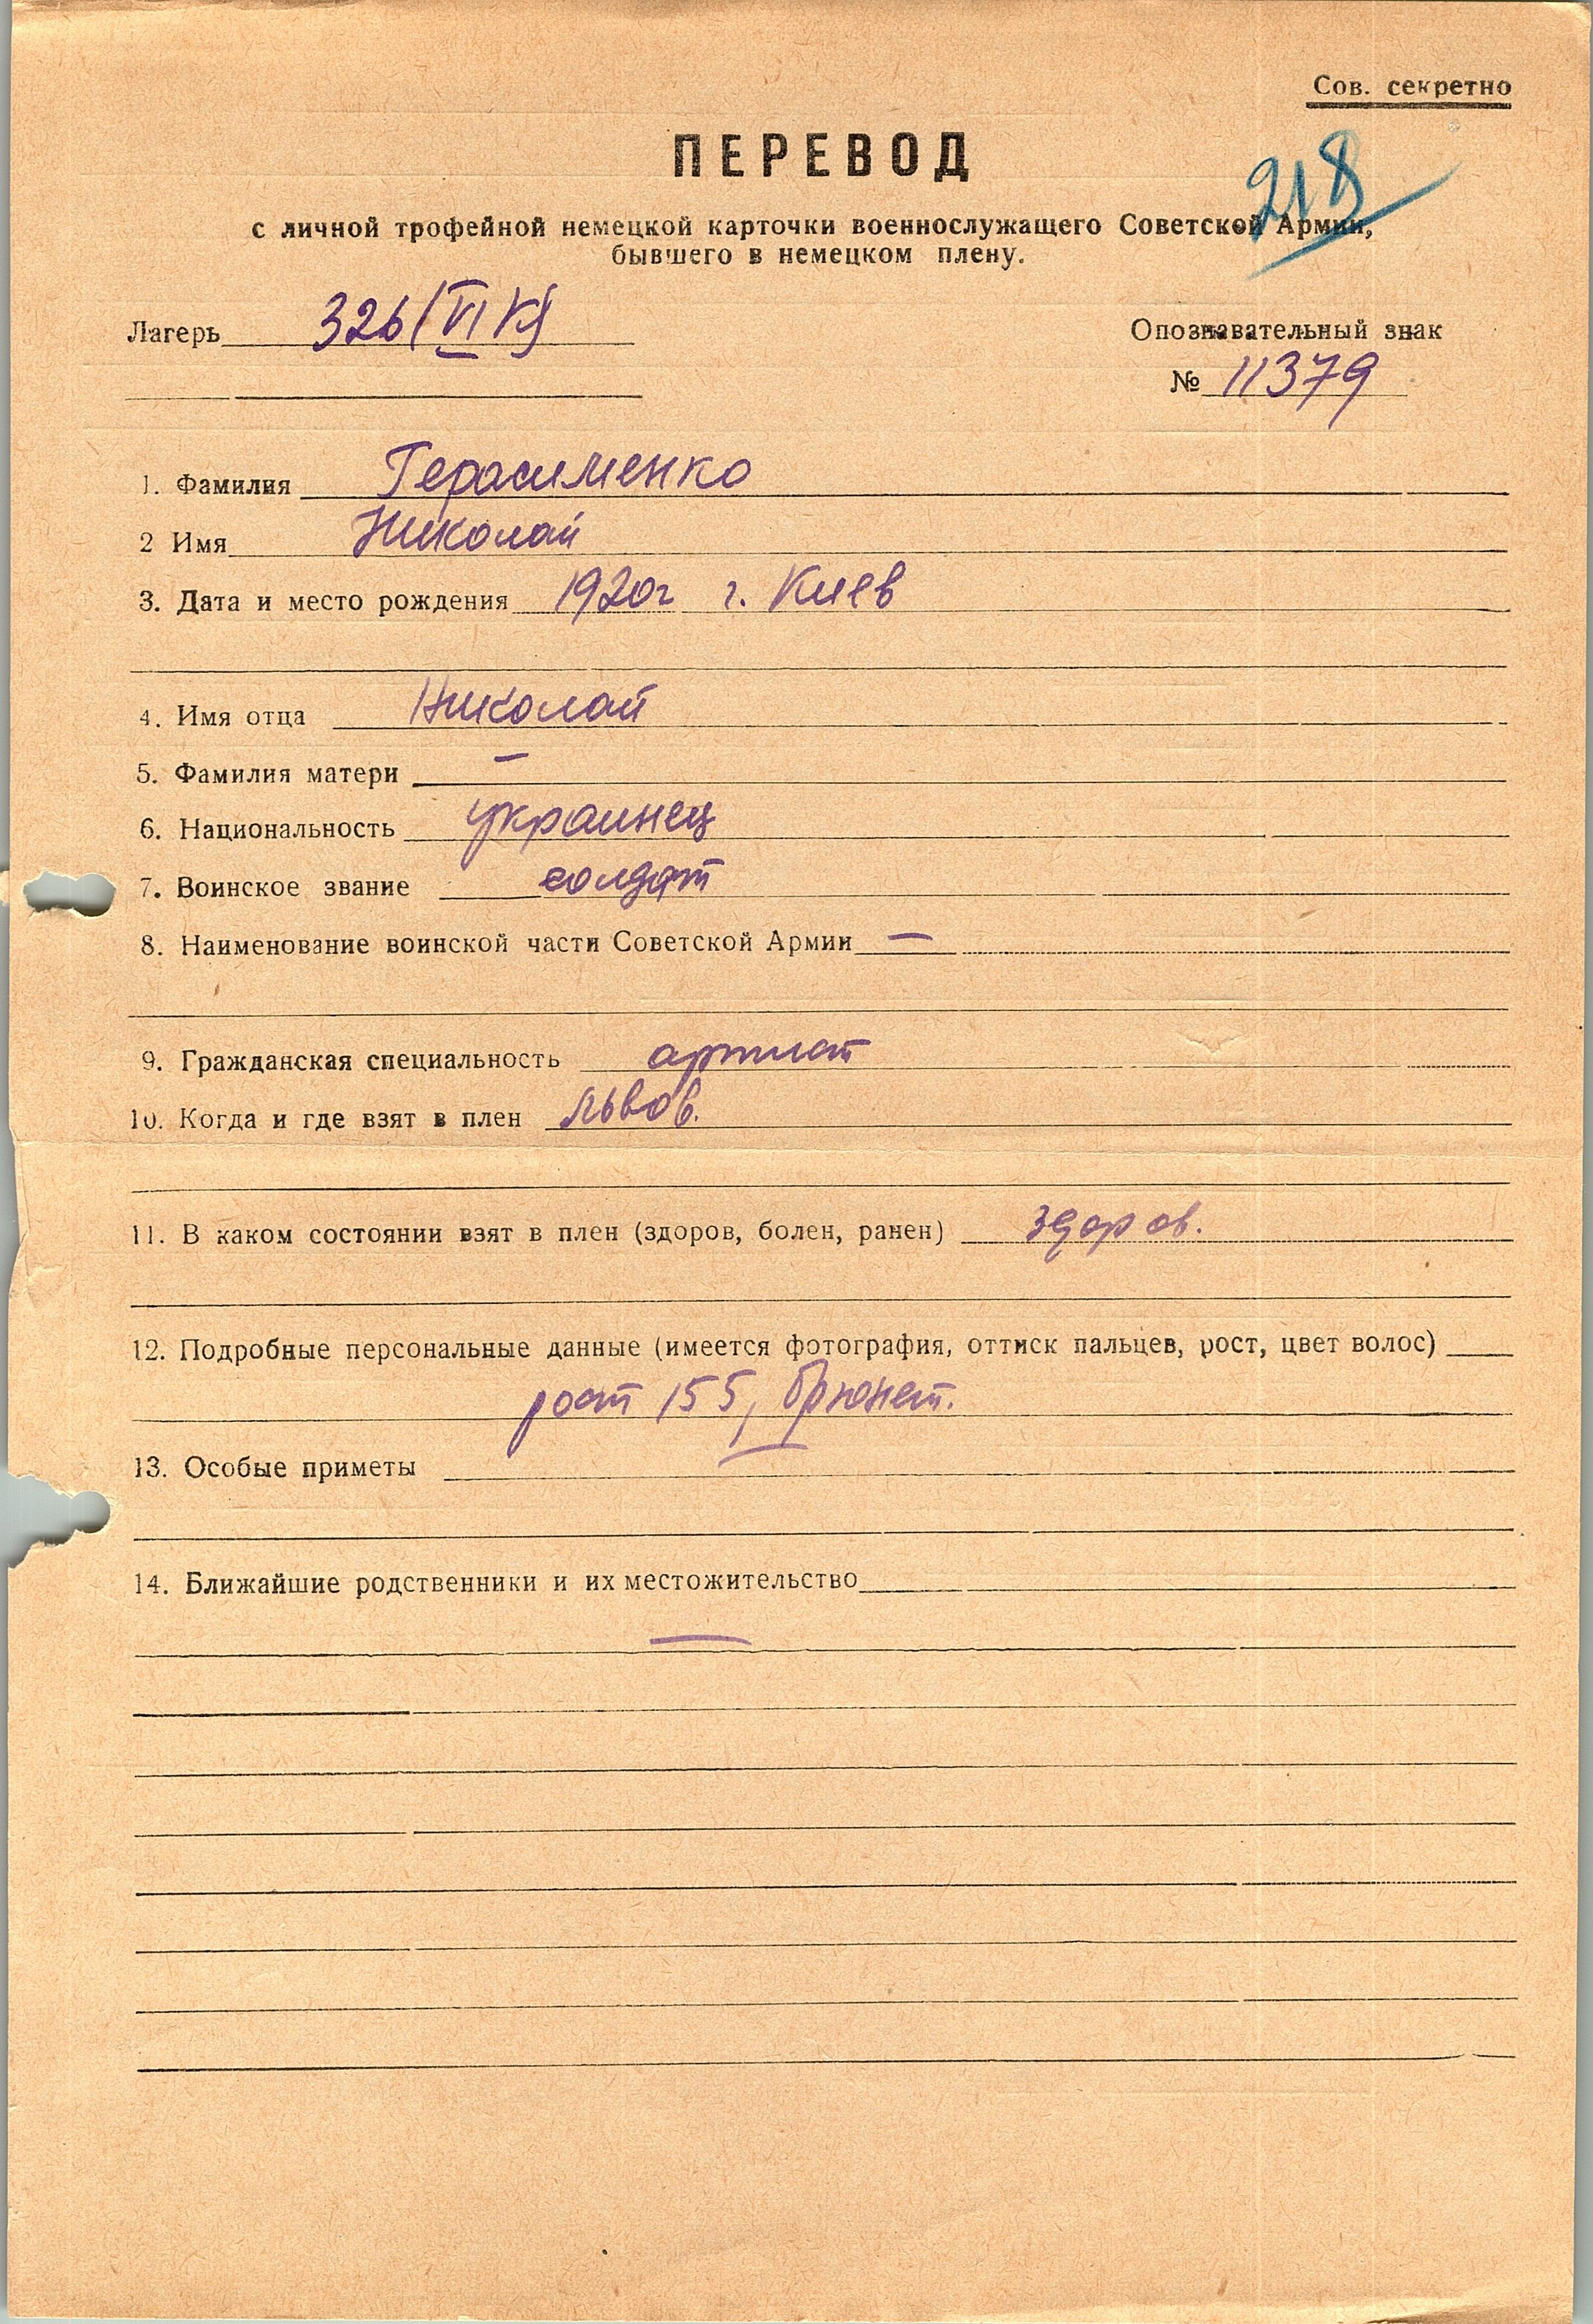 Сов. секретно
ПЕРЕВОД
218
с личной трофейной немецкой карточки военнослужащего Советской Армии,
бывшего в немецком плену.
Лагерь 326/VI K)
Опознавательный знак
№ 11379
1. Фамилия Герасименко
2 Имя Николай
3. Дата и место рождения 1920г г. Киев
4. Имя отца Николай
5. Фамилия матери —
6. Национальность украинец
7. Воинское звание солдат
8. Наименование воинской части Советской Армии —
9. Гражданская специальность
10. Когда и где взят в плен Львов.
11. В каком состоянии взят в плен (здоров, болен, ранен) здоров.
12. Подробные персональные данные (имеется фотография, оттиск пальцев, рост, цвет волос)
рост 155, брюнет.
13. Особые приметы —
14. Ближайшие родственники и их местожительство
—